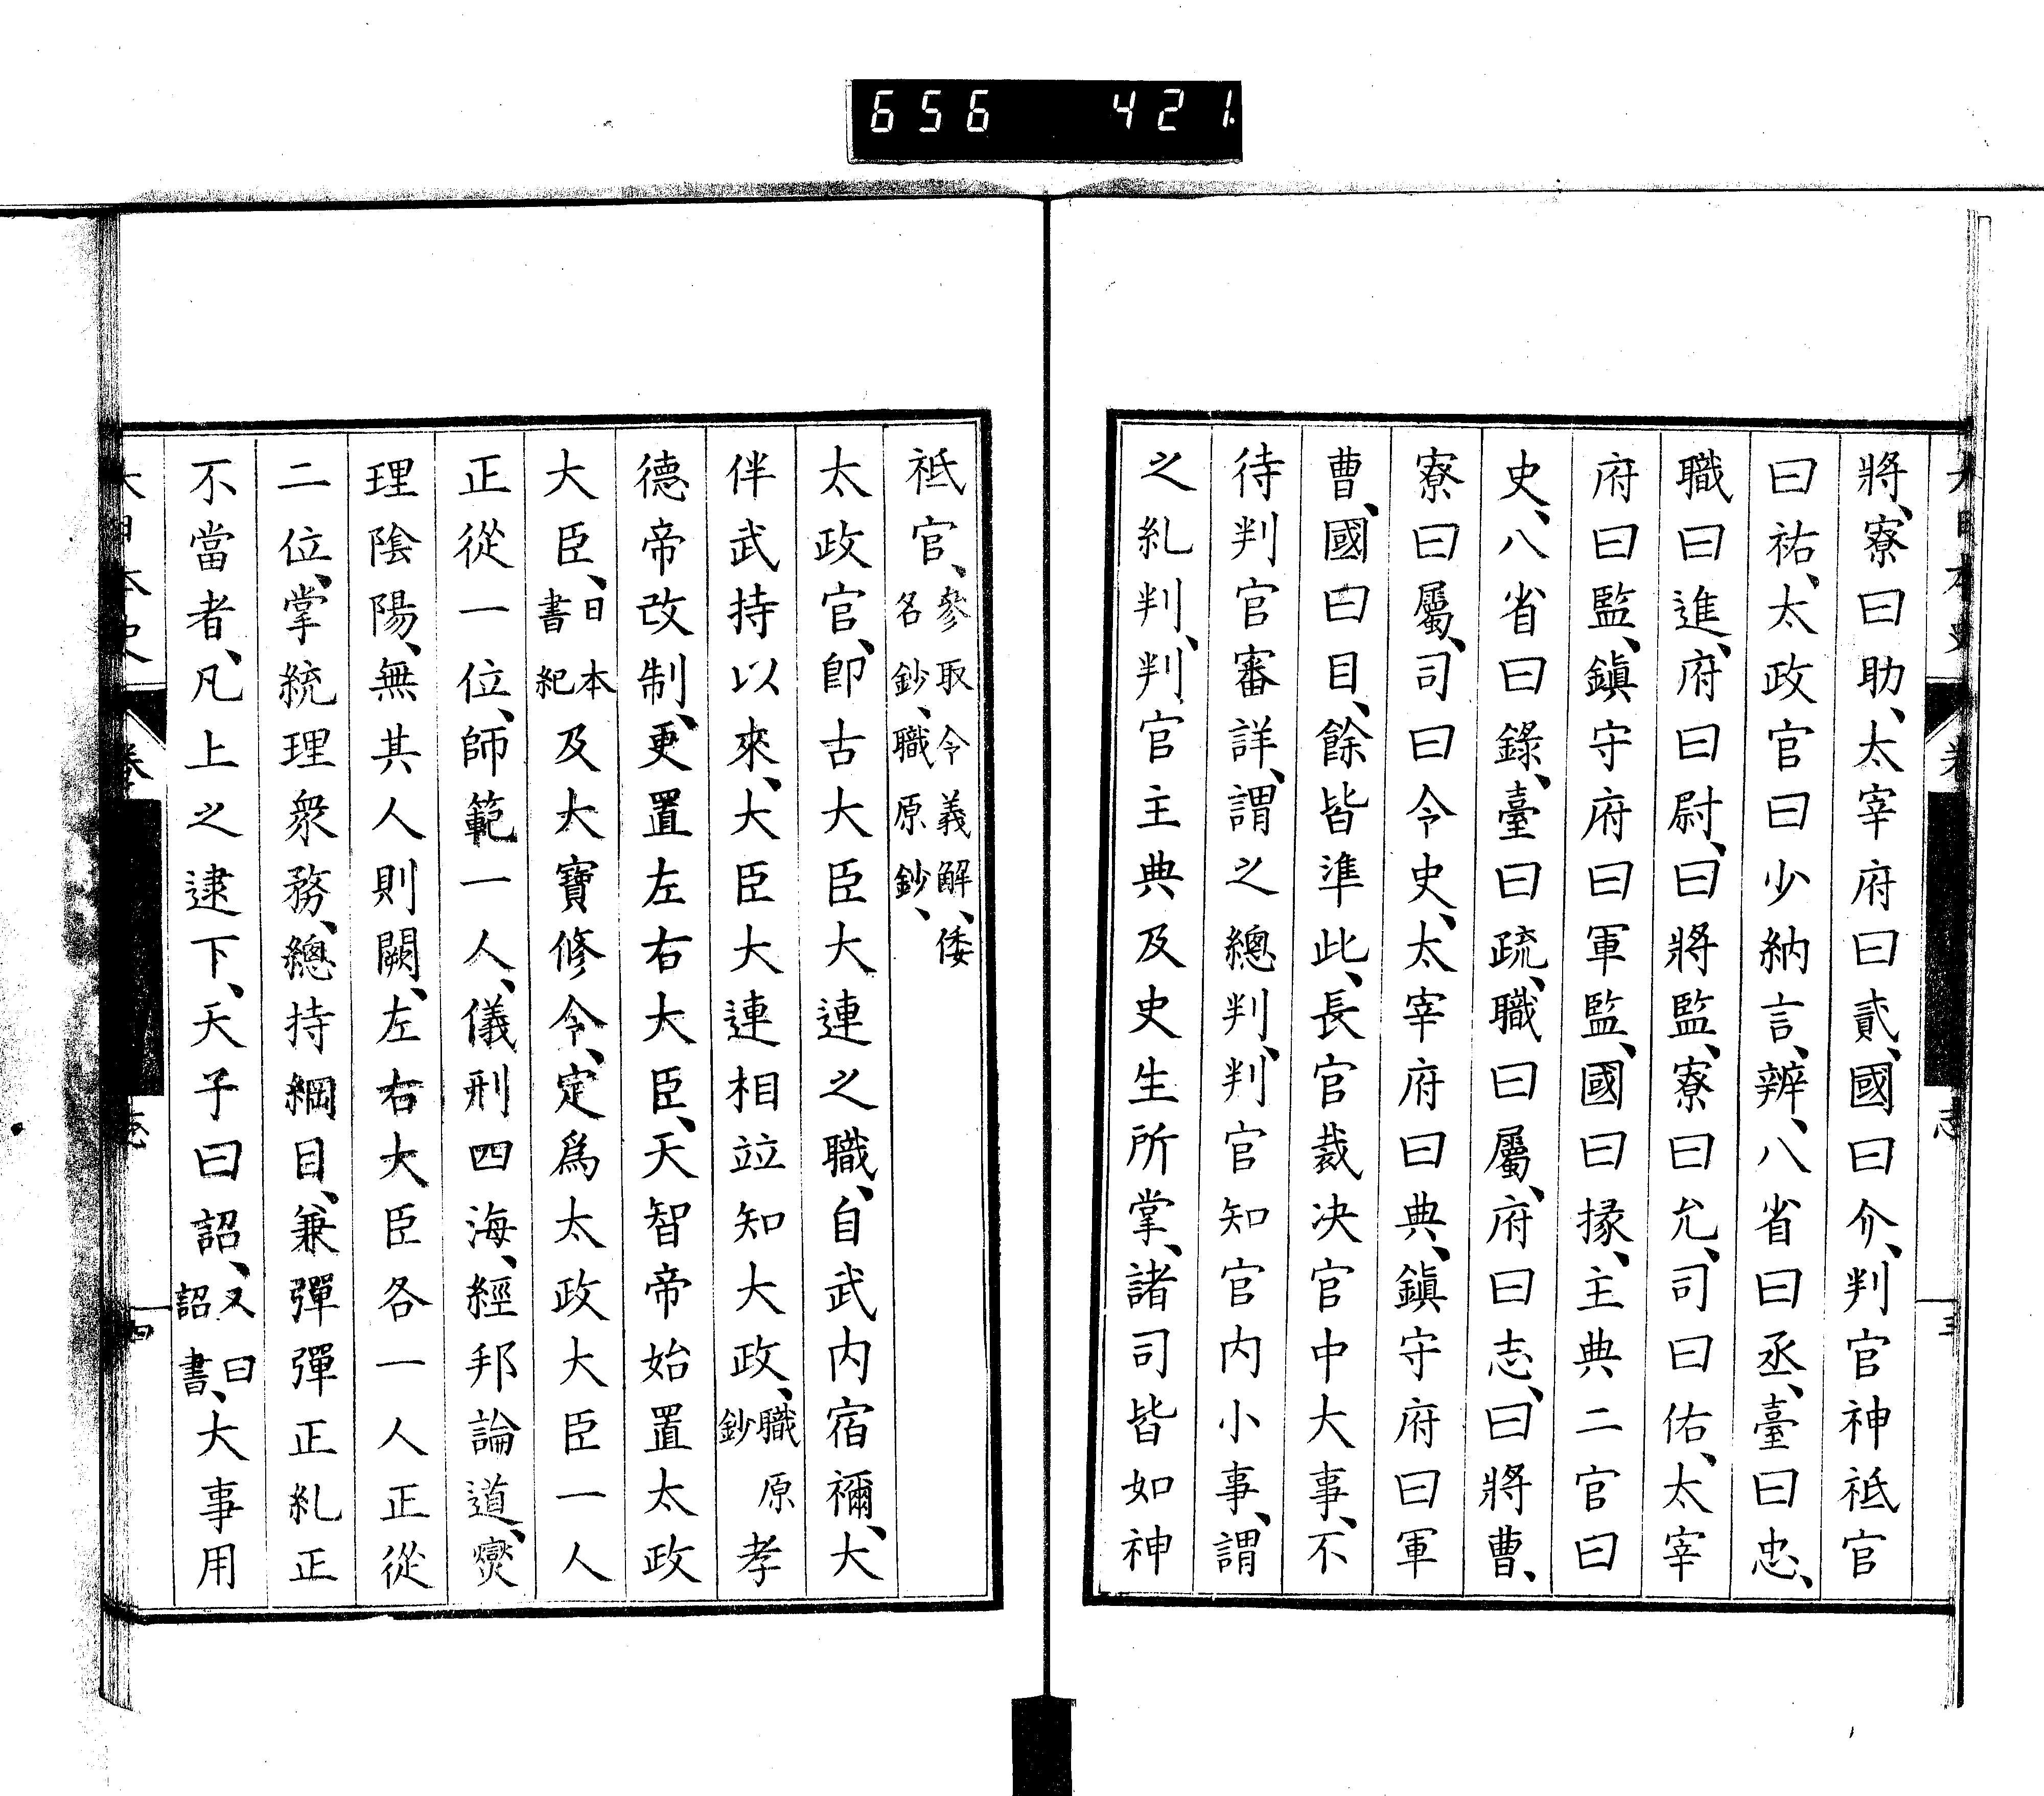 656 421
將、寮曰助、太宰府曰貳、國曰介、判官神祇官
曰祐、太政官曰少納言、辨、八省曰丞、臺曰忠、
職曰進、府曰尉、曰將監、寮曰允、司曰佑、太宰
府曰監、鎭守府曰軍監、國曰掾、主典二官曰
史、八省曰錄、臺曰疏、職曰屬、府曰志、曰將曹、
寮曰屬、司曰令史、太宰府曰典、鎭守府曰軍
曹、國曰目、餘皆準此、長官裁決官中大事、不
待判官審詳、謂之總判、判官知官内小事、謂
之糺判、判官主典及史生所掌、諸司皆如神
祇官、參取令義解、倭名鈔、職原鈔、
太政官、卽古大臣大連之職、自武内宿禰、大
伴武持以來、大臣大連相竝知大政、職原鈔孝
德帝改制、更置左右大臣、天智帝始置太政
大臣、日本書紀及大寶修令、定爲太政大臣一人
正從一位、師範一人、儀刑四海、經邦論道、燮
理陰陽、無其人則闕、左右大臣各一人正從
二位、掌統理衆務、總持綱目、兼彈彈正糺正
不當者、凡上之逮下、天子曰詔、又曰詔書、大事用